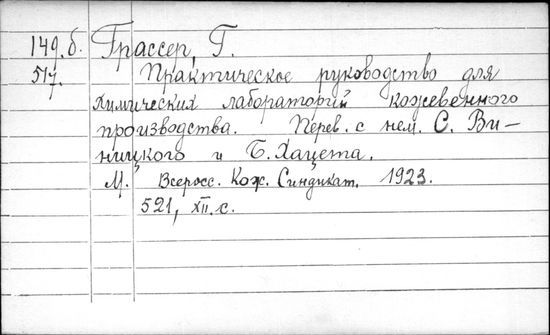 149.б. Грассер, Г.
517. Практическое руководство для
химических лабораторий кожевенного
производства. Перев. с нем. С. Ви-
ницкого и Б. Хацета.
М. Всеросс. Кож. Синдикат. 1923.
521, XII.с.